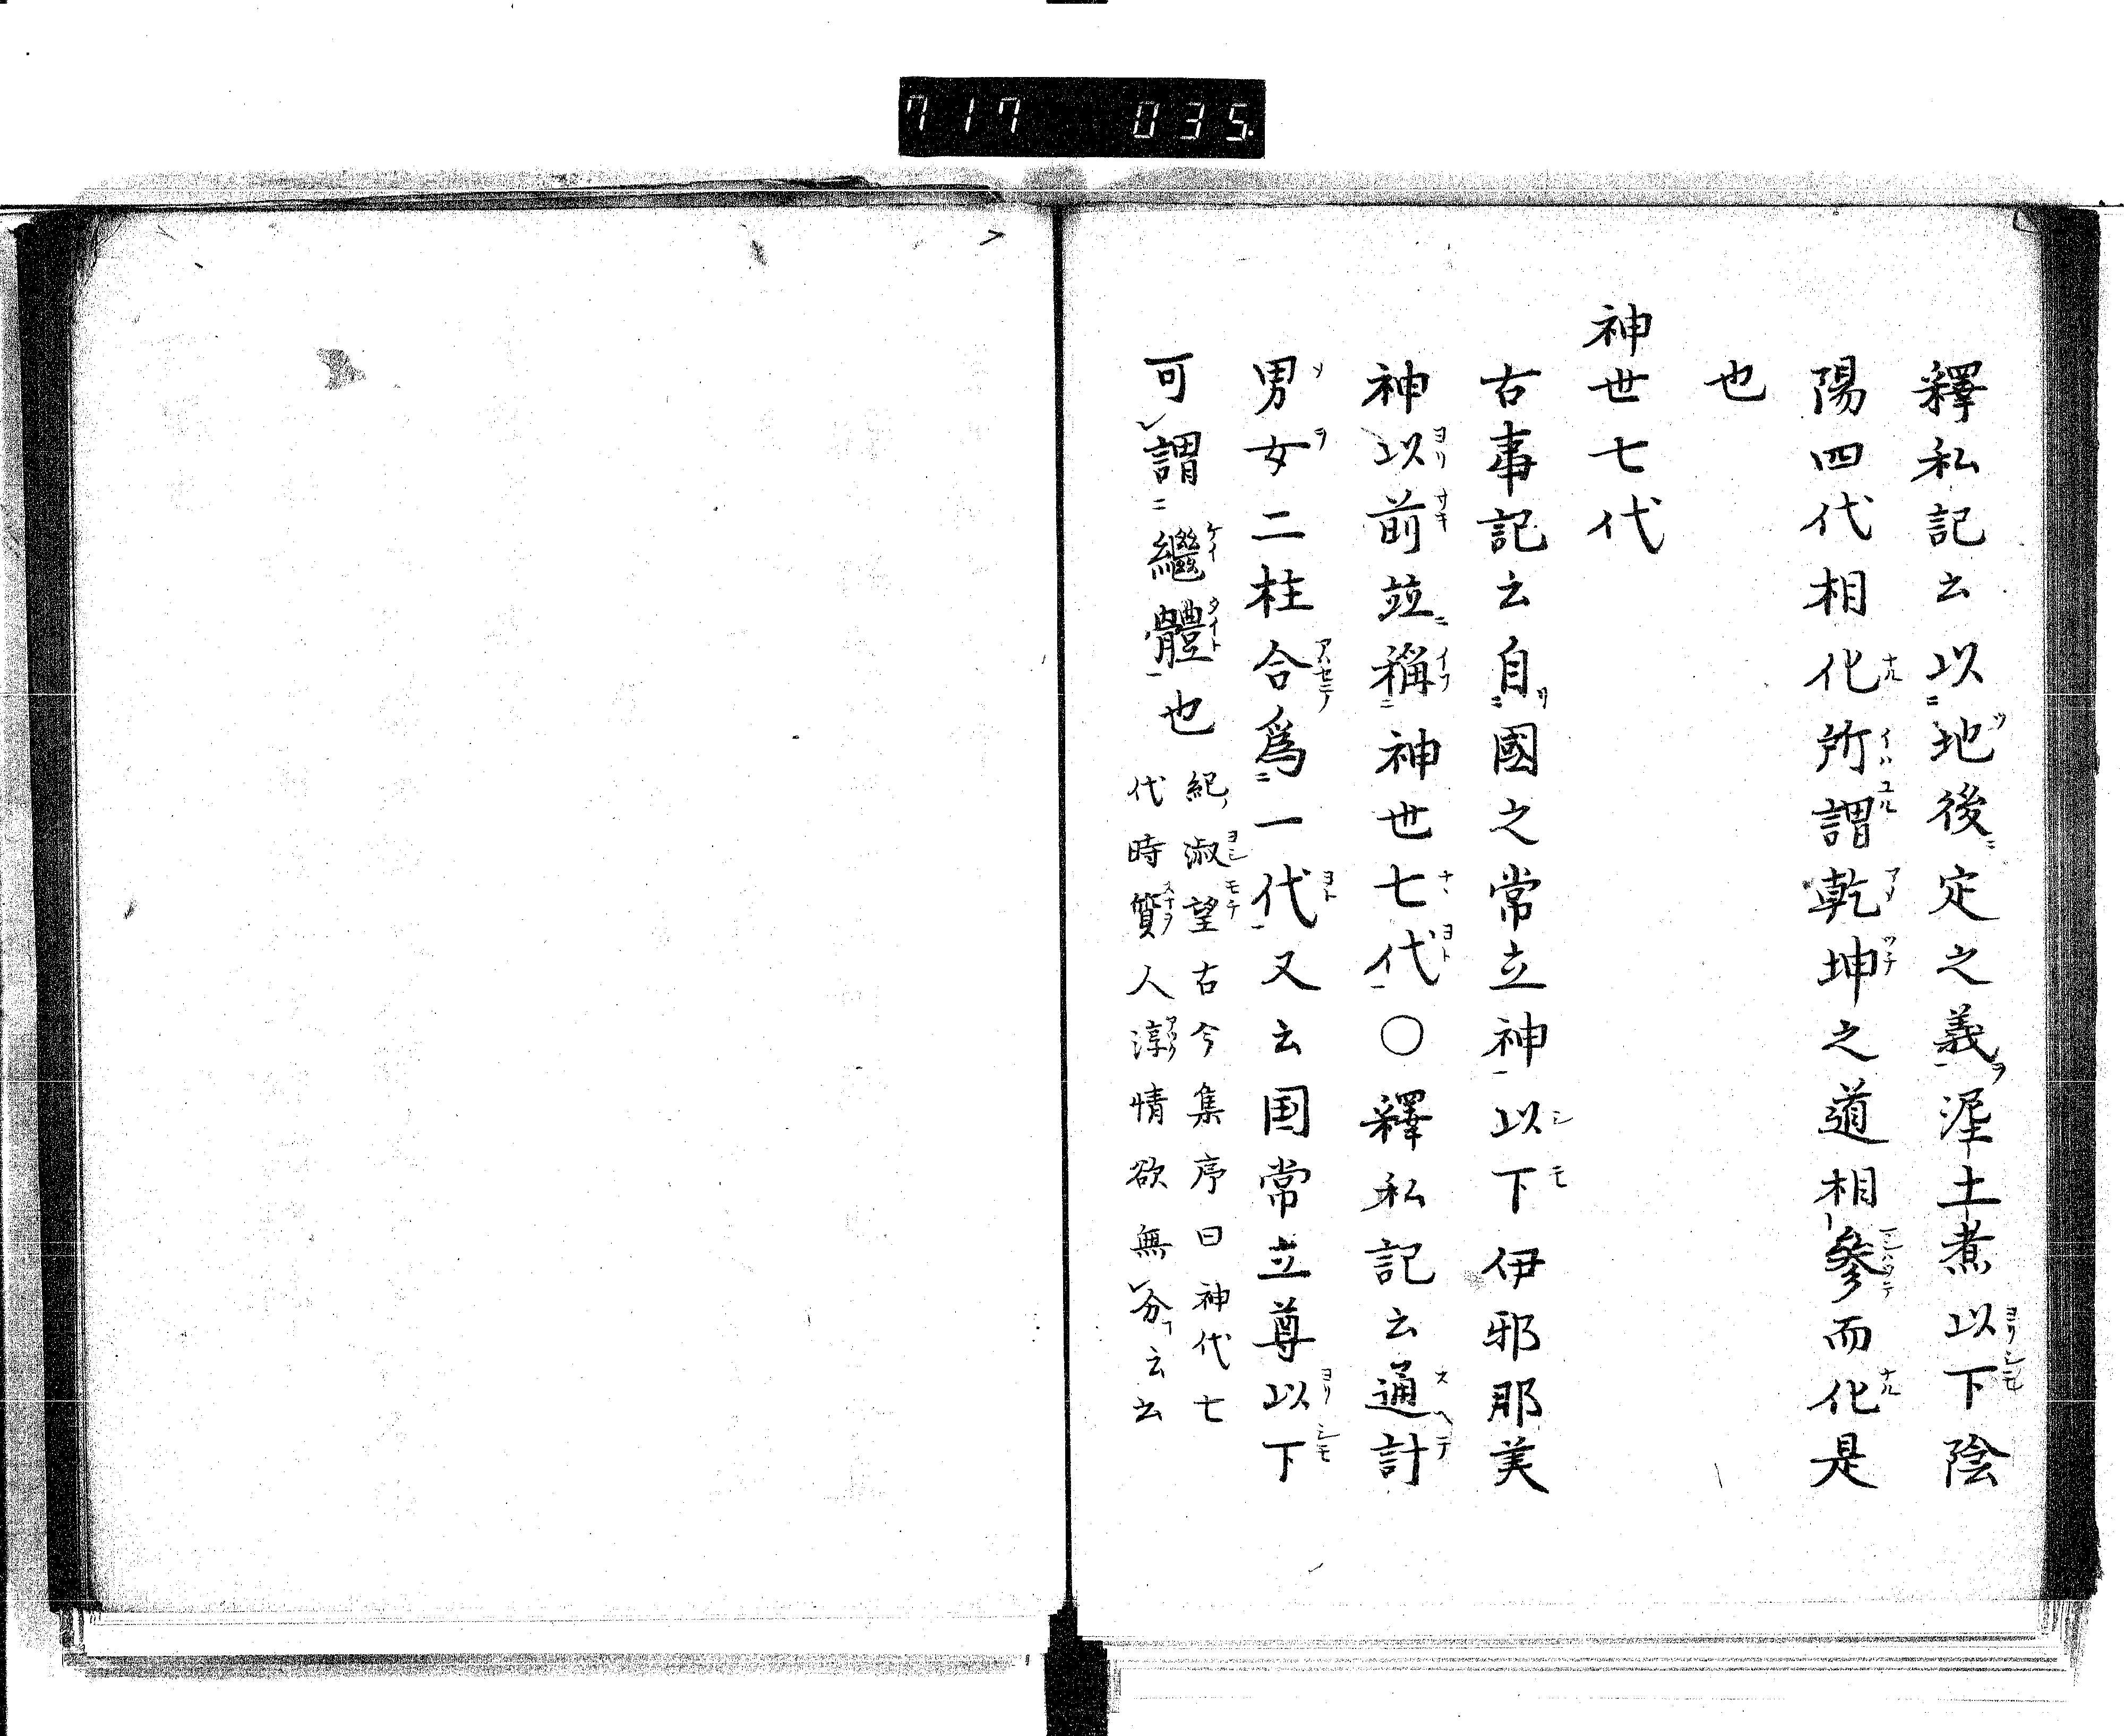 717 035.
釋私記云以地後定之義泥土煮以下陰
陽四代相化所謂乾坤之道相參而化是
也
神世七代
古事記云自國之常立神以下伊邪那美
神以前並稱神世七代〇釋私記云通計
男女二柱合爲一代又云国常立尊以下
可謂繼體也
紀淑望古今集序曰神代七
代時質人淳情欲無分云云